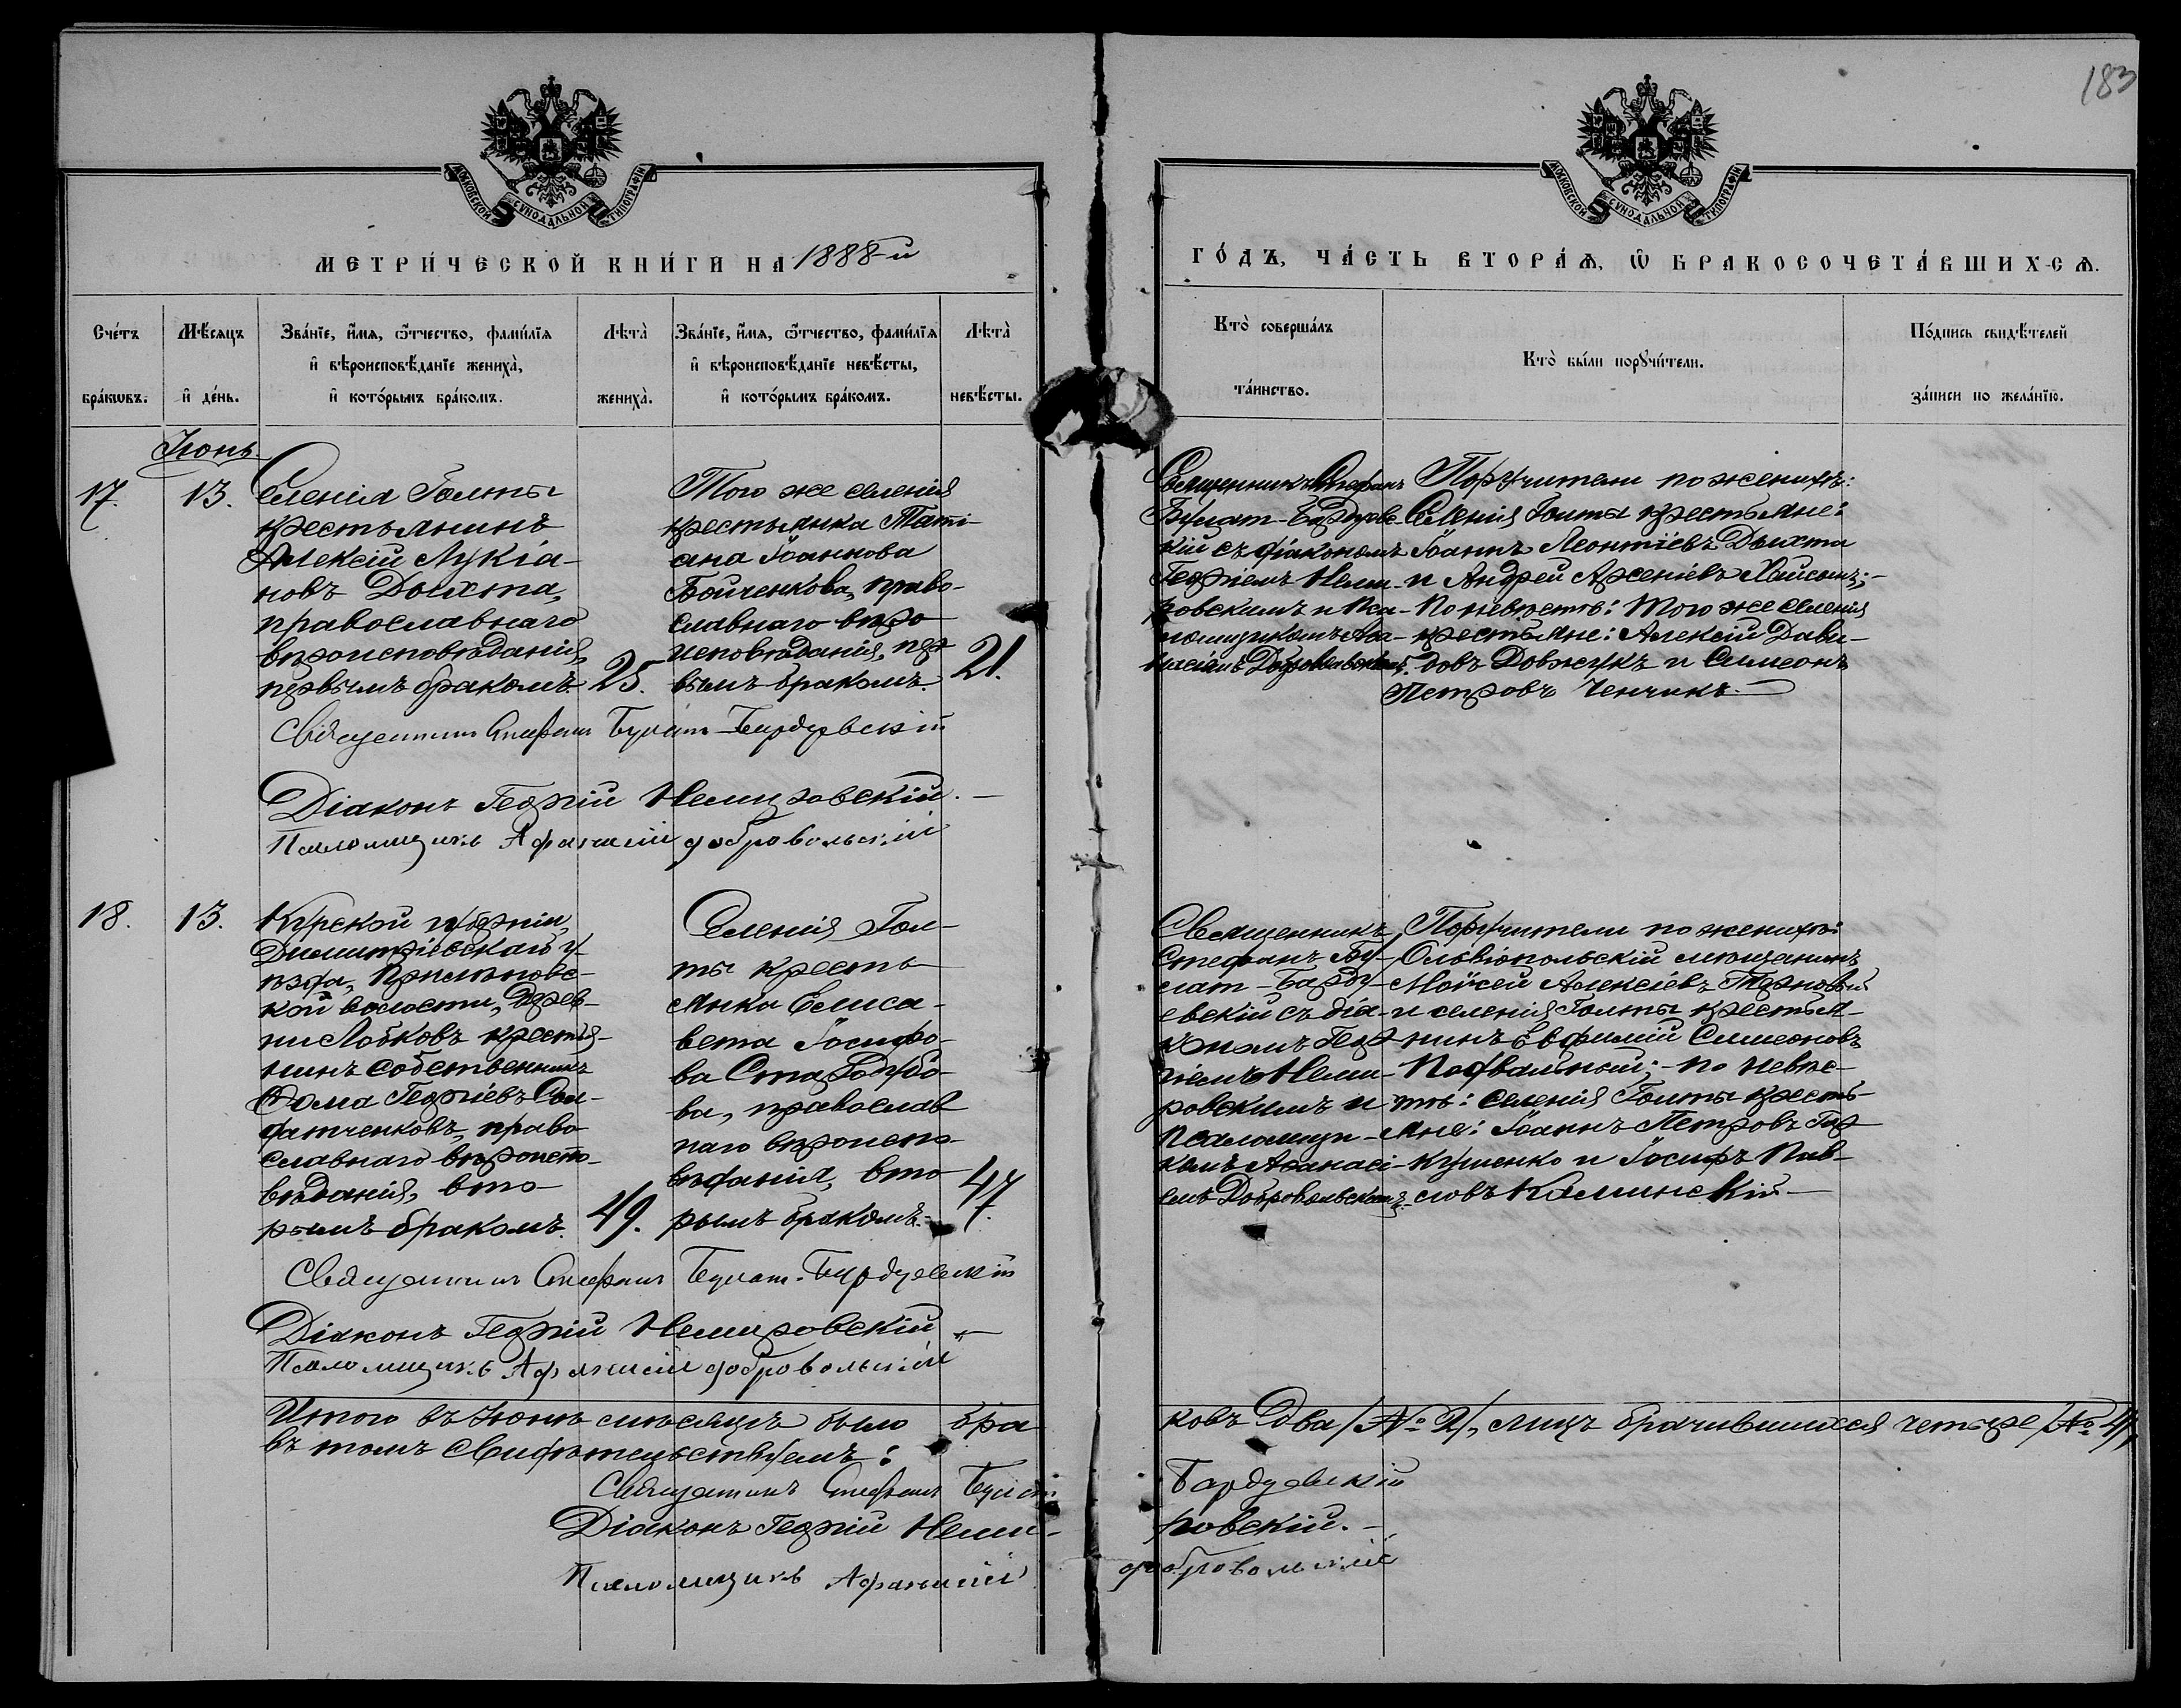 183
МОСКОВСКОЙ СѴНОДАЛЬНОЙ ТИПОГРАФІИ
МОСКОВСКОЙ СѴНОДАЛЬНОЙ ТИПОГРАФІИ
МЕТРИ́ЧЕСКОЙ КНИ́ГИ НА 1888-й
ГО́ДЪ, ЧА́СТЬ ВТОРА́Ѧ, Ѡ҆ БРАКОСОЧЕТА́ВШИХ-СѦ.
Сче́тъ бра́кѡвъ.
Мѣ́сяцъ и҆ де́нь.
Зва́нїе, и҆́мя, ѻ҆́тчество, фами́лїя
и҆ вѣроисповѣ́данїе жениха̀,
и҆ кото́рымъ бра́комъ.
Лѣта̀ жениха̀.
Зва́нїе, и҆́мя, ѻ҆́тчество, фами́лїя
и҆ вѣроисповѣ́данїе невѣ́сты,
и҆ кото́рымъ бра́комъ.
Лѣта̀ невѣ́сты.
Кто̀ соверша́лъ та́инство.
Кто̀ бы́ли порꙋчи́тели.
По́дпись свидѣ́телей за́писи по жела́нїю.
Іюнь
17.
13.
Селенія Голты
крестьянинъ
Алексій Лукіа-
новъ Дыхта,
православнаго
вѣроисповѣданія,
первымъ бракомъ.
25.
Того же селенія
крестьянка Тати-
ана Іоаннова
Бойченкова, право-
славнаго вѣро
исповѣданія, пер
вымъ бракомъ.
21.
Священникъ Стефанъ
Булат-Бардуевс
кій съ діакономъ
Георгіемъ Неми-
ровскимъ и Пса-
ломщикомъ Аѳа-
насіемъ Добровольскимъ.
Поручители по женихѣ:
Селенія Голты крестьяне:
Іоаннъ Леонтіевъ Дыхта
и Андрей Арсеніевъ Хайсынъ;-
По невѣстѣ: Того же селенія
крестьяне: Алексій Дави-
довъ Довжукъ и Симеонъ
Петровъ Ченчикъ.
Священникъ Стефанъ Булат-Бардуевскій
Діаконъ Георгій Немировскій.
Псаломщикъ Афанасій Добровольскій
18.
13.
Курской губерніи,
Димитріевскаго у-
ѣзда,
кой волости, Дерев-
ни Лобковъ крестья-
нинъ собственникъ
Ѳома Георгіевъ Сол-
датченковъ, право-
славнаго вѣроиспо-
вѣданія, вто-
рымъ бракомъ.
49.
Селенія Гол-
ты кресть-
янка Елиса-
вета Іосифо-
ва
ва, православ
наго вѣроиспо-
вѣданія, вто
рымъ бракомъ.-
47.
Священникъ
Стефанъ Бу-
лат-Барду-
евскій съ діа-
кономъ Геор
гіемъ Неми-
ровскимъ и
псаломщи-
комъ Аѳанасі-
емъ Добровольскимъ.
Поручители по женихѣ:
Ольвіопольскій мѣщанинъ
Моѵсей Алексіевъ Терновый
и селенія Голты крестья-
нинъ Евфимій Симеоновъ
Подвальный; - по невѣс-
тѣ: селенія Голты кресть-
яне: Іоаннъ Петровъ Гор
кушенко и Іосифъ Пав-
ловъ Каминскій
Священникъ Стефанъ Булат-Бардуевскій
Діаконъ Георгій Немировскій
Псаломщикъ Афанасій Добровольскій
Итого въ Іюнѣ мѣсяцѣ было браковъ Два /№ 2/, лицъ брачившихся четыре /№ 4/,
въ томъ свидѣтельствуемъ:
Священникъ Стефанъ Булат Бардуевскій
Діаконъ Георгій Немировскій.
Псаломщикъ Афанасій Добровольскій